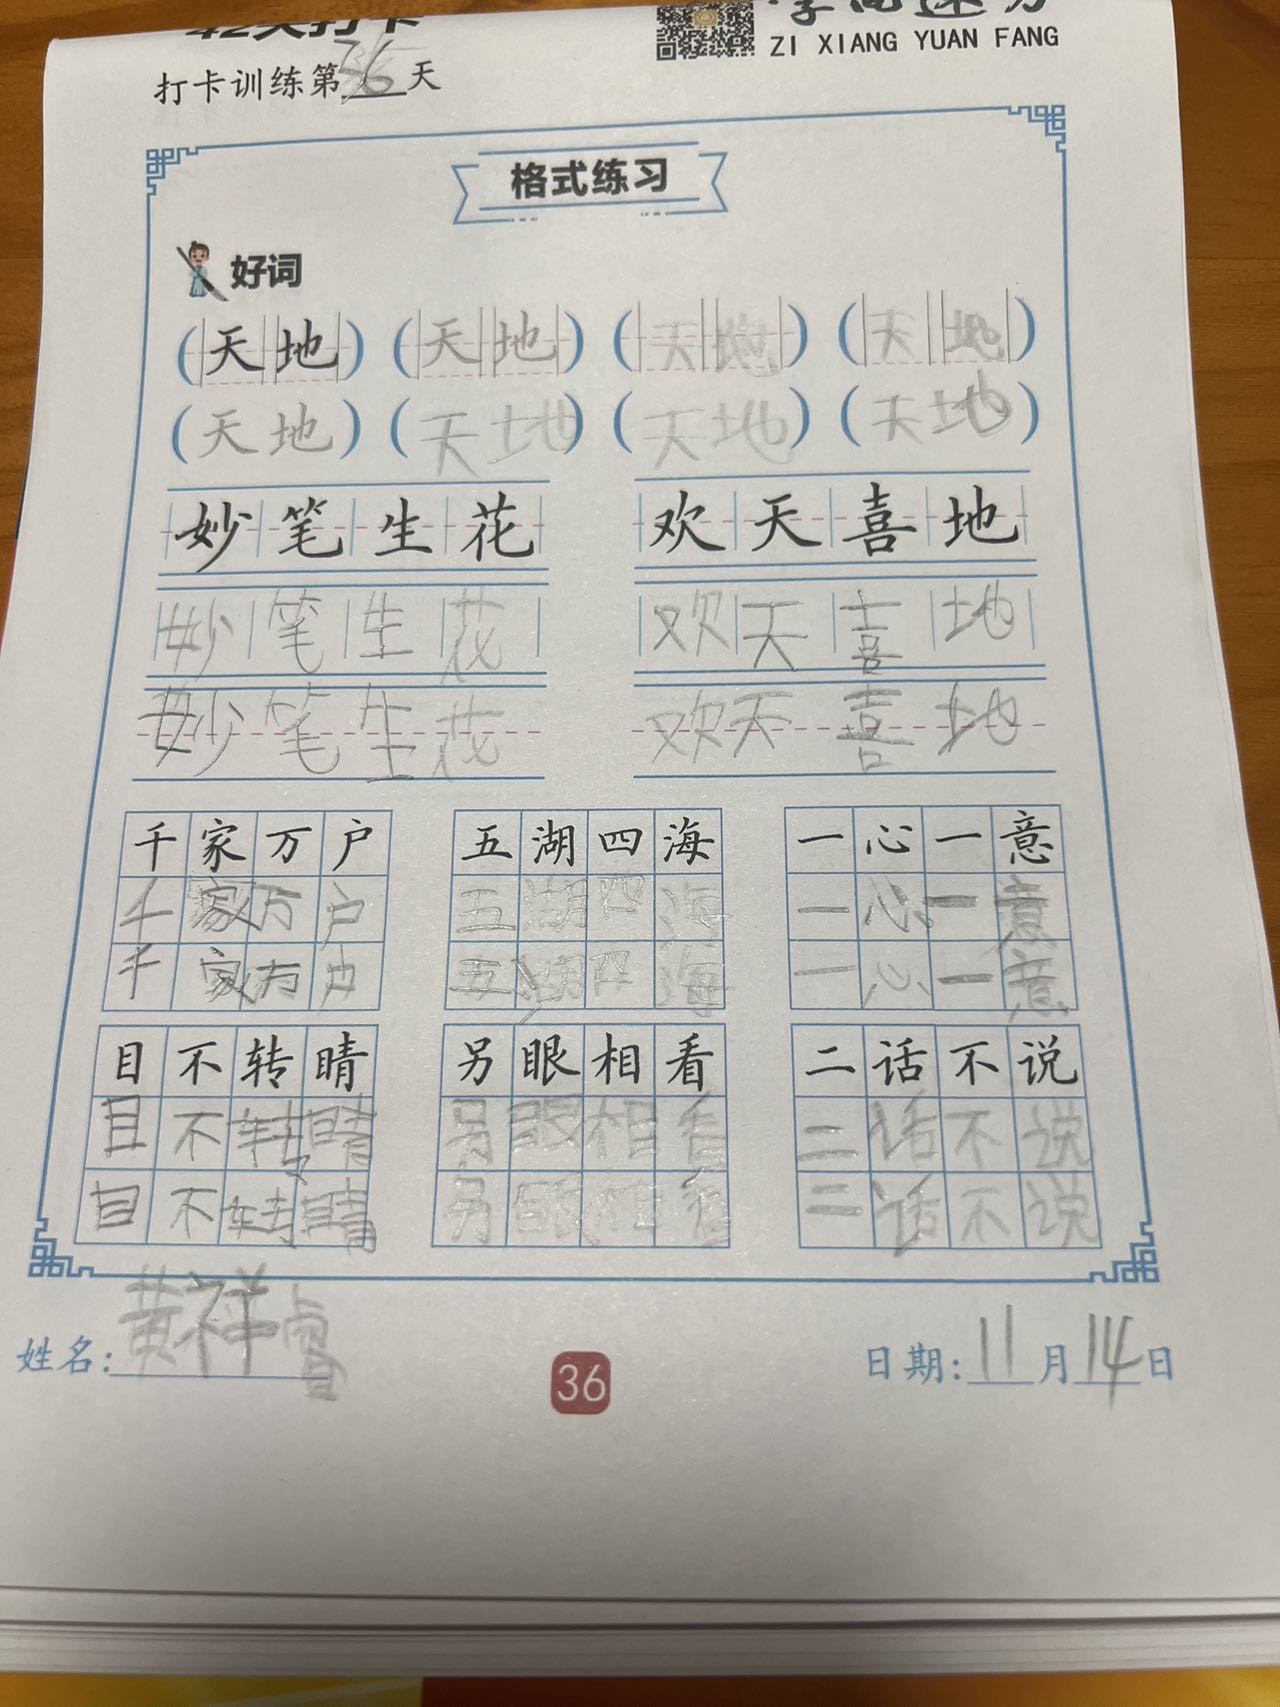 42天打卡
字向远方
ZI XIANG YUAN FANG
打卡训练第36天
格式练习
好词
(天地) (天地) (天地) (天地)
(天地) (天地) (天地) (天地)
妙笔生花 欢天喜地
妙笔生花 欢天喜地
妙笔生花 欢天喜地
千家万户 五湖四海 一心一意
千家万户 五湖四海 一心一意
千家万户 五湖四海 一心一意
目不转睛 另眼相看 二话不说
目不转睛 另眼相看 二话不说
目不转睛 另眼相看 二话不说
姓名:黄祥
36
日期:11月14日